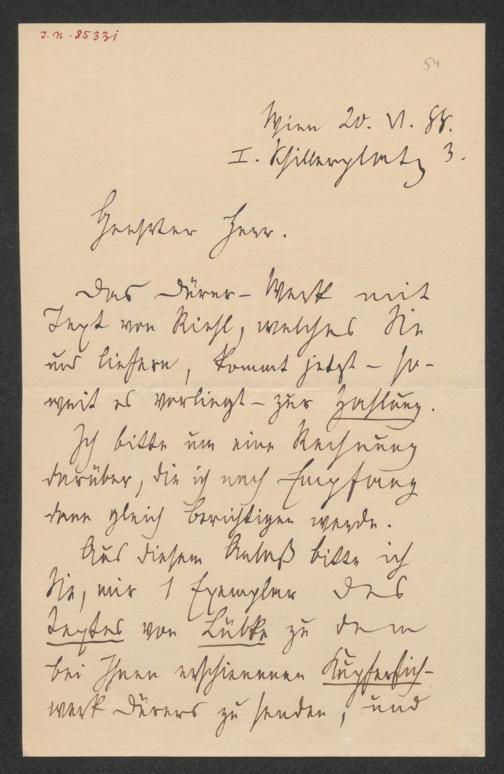 J.N. 85331
54
Wien 20. VI. 88.
I. Schillerplatz 3.
Geehrter Herr.
Das Dürer-Werk mit
Text von Riehl, welches Sie
uns liefern, kommt jetzt – so-
weit es vorliegt – zur Zahlung.
Ich bitte um eine Rechnung
darüber, die ich nach Empfang
dann gleich berichtigen werde.
Aus diesem Anlaß bitte ich
Sie, mir 1 Exemplar des
Textes von Lübke zu dem
bei Ihnen erschienenen Kupferstich-
werk Dürers zu senden, und